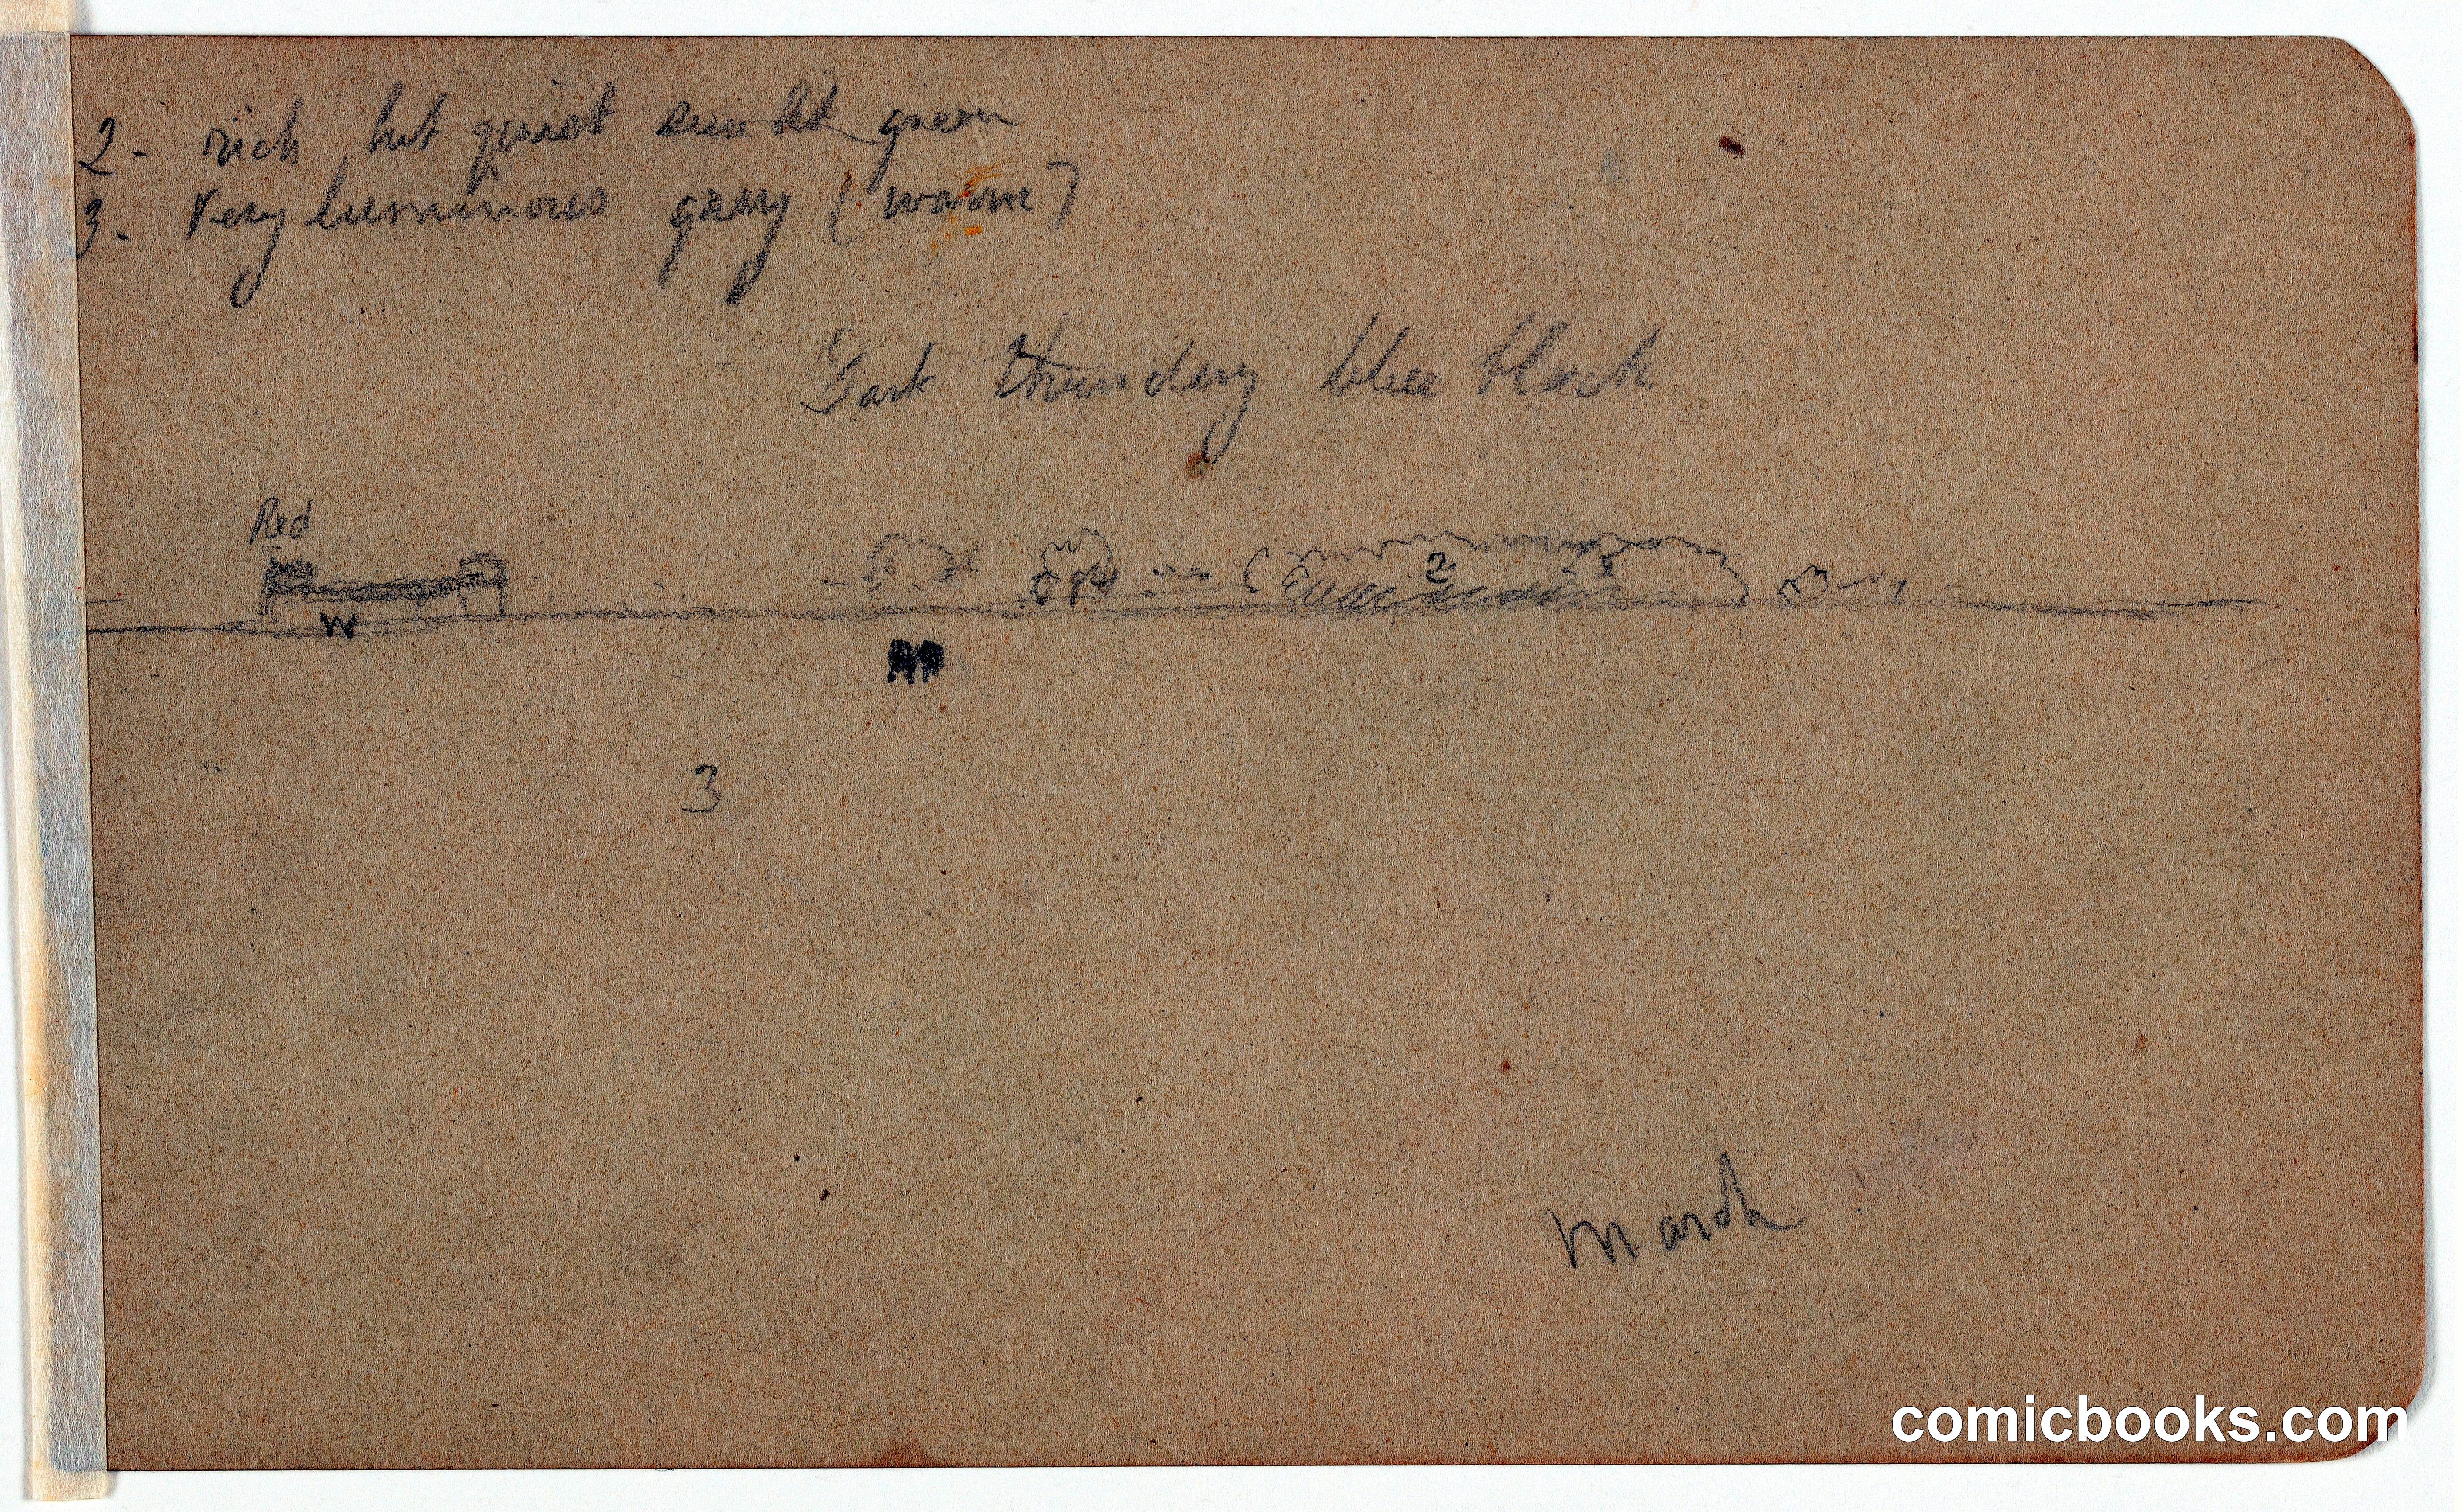 2- rich but quiet green
3. Very luminous gray (warm)
Dark thundery blue black
Red
2
W
3
March
comicbooks.com